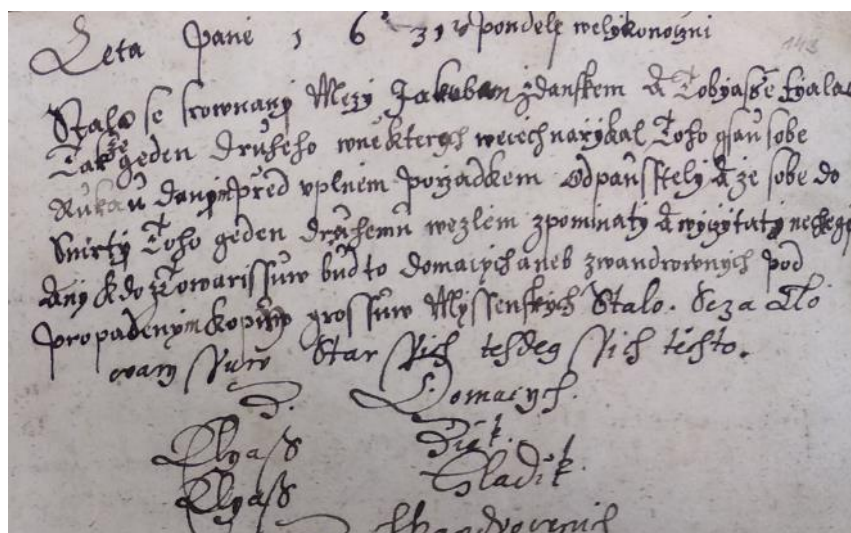 Leta Pane 1 6 31 v Pondely welykonoczni
143
Stalo se srownany Mezy Jakubem Zdanskem A Tobyassse
Takže geden druheho wniekterych weciech narzykal Toho gsau sobe
Rukau danym przed vplnem porzadkem Odpausstely A že sobe do
Smrty Toho geden druhemu wezlem zpominaty A wyczytaty
Any kdo z Towarissuw bud to domaczych aneb zwandrownych pod
propadenym kopy grossuw Myssenskych Stalo se za To
waryssuw Starssich tehdegssich techto.
Domaczych.
Elyass
Elyass Hladik.